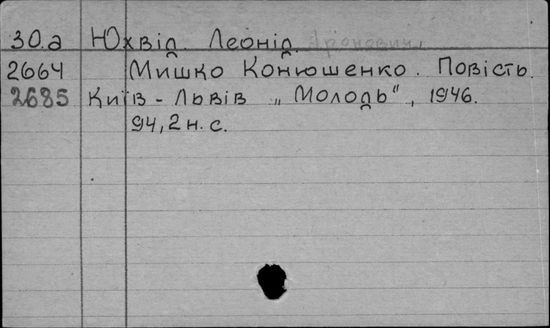 30.а Юхвід. Леонід. Аронович
2664 Мишко Конюшенко. Повість.
2685 Київ - Львів „Молодь", 1946.
94,2 н. с.